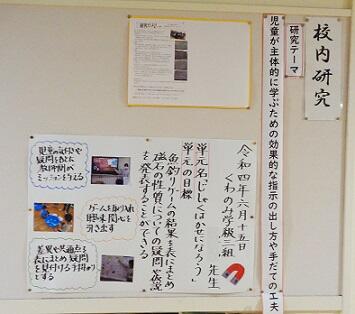 校内研究
研究テーマ
児童が主体的に学ぶための効果的な指示の出し方や手だての工夫
令和四年六月十五日
くわのみ学級三組
先生
単元名「じしゃくはかせになろう」
単元の目標
魚釣りゲームの結果を表にまとめ
磁石の性質についての疑問や仮説
を発表することができる
児童の気付きや
疑問をもとに
教師側が
ミッションを与える
ゲームを取り入れ
興味関心を
引き出す
差異や共通点を
表にまとめ疑問
を見付ける手掛かり
とする